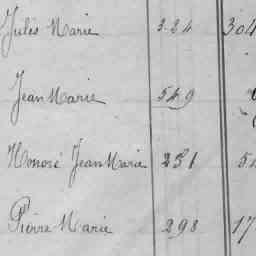 Jules Marie 324 304
Jean Marie 549
Honoré Jean Marie 251 5
Pierre Marie 298 17